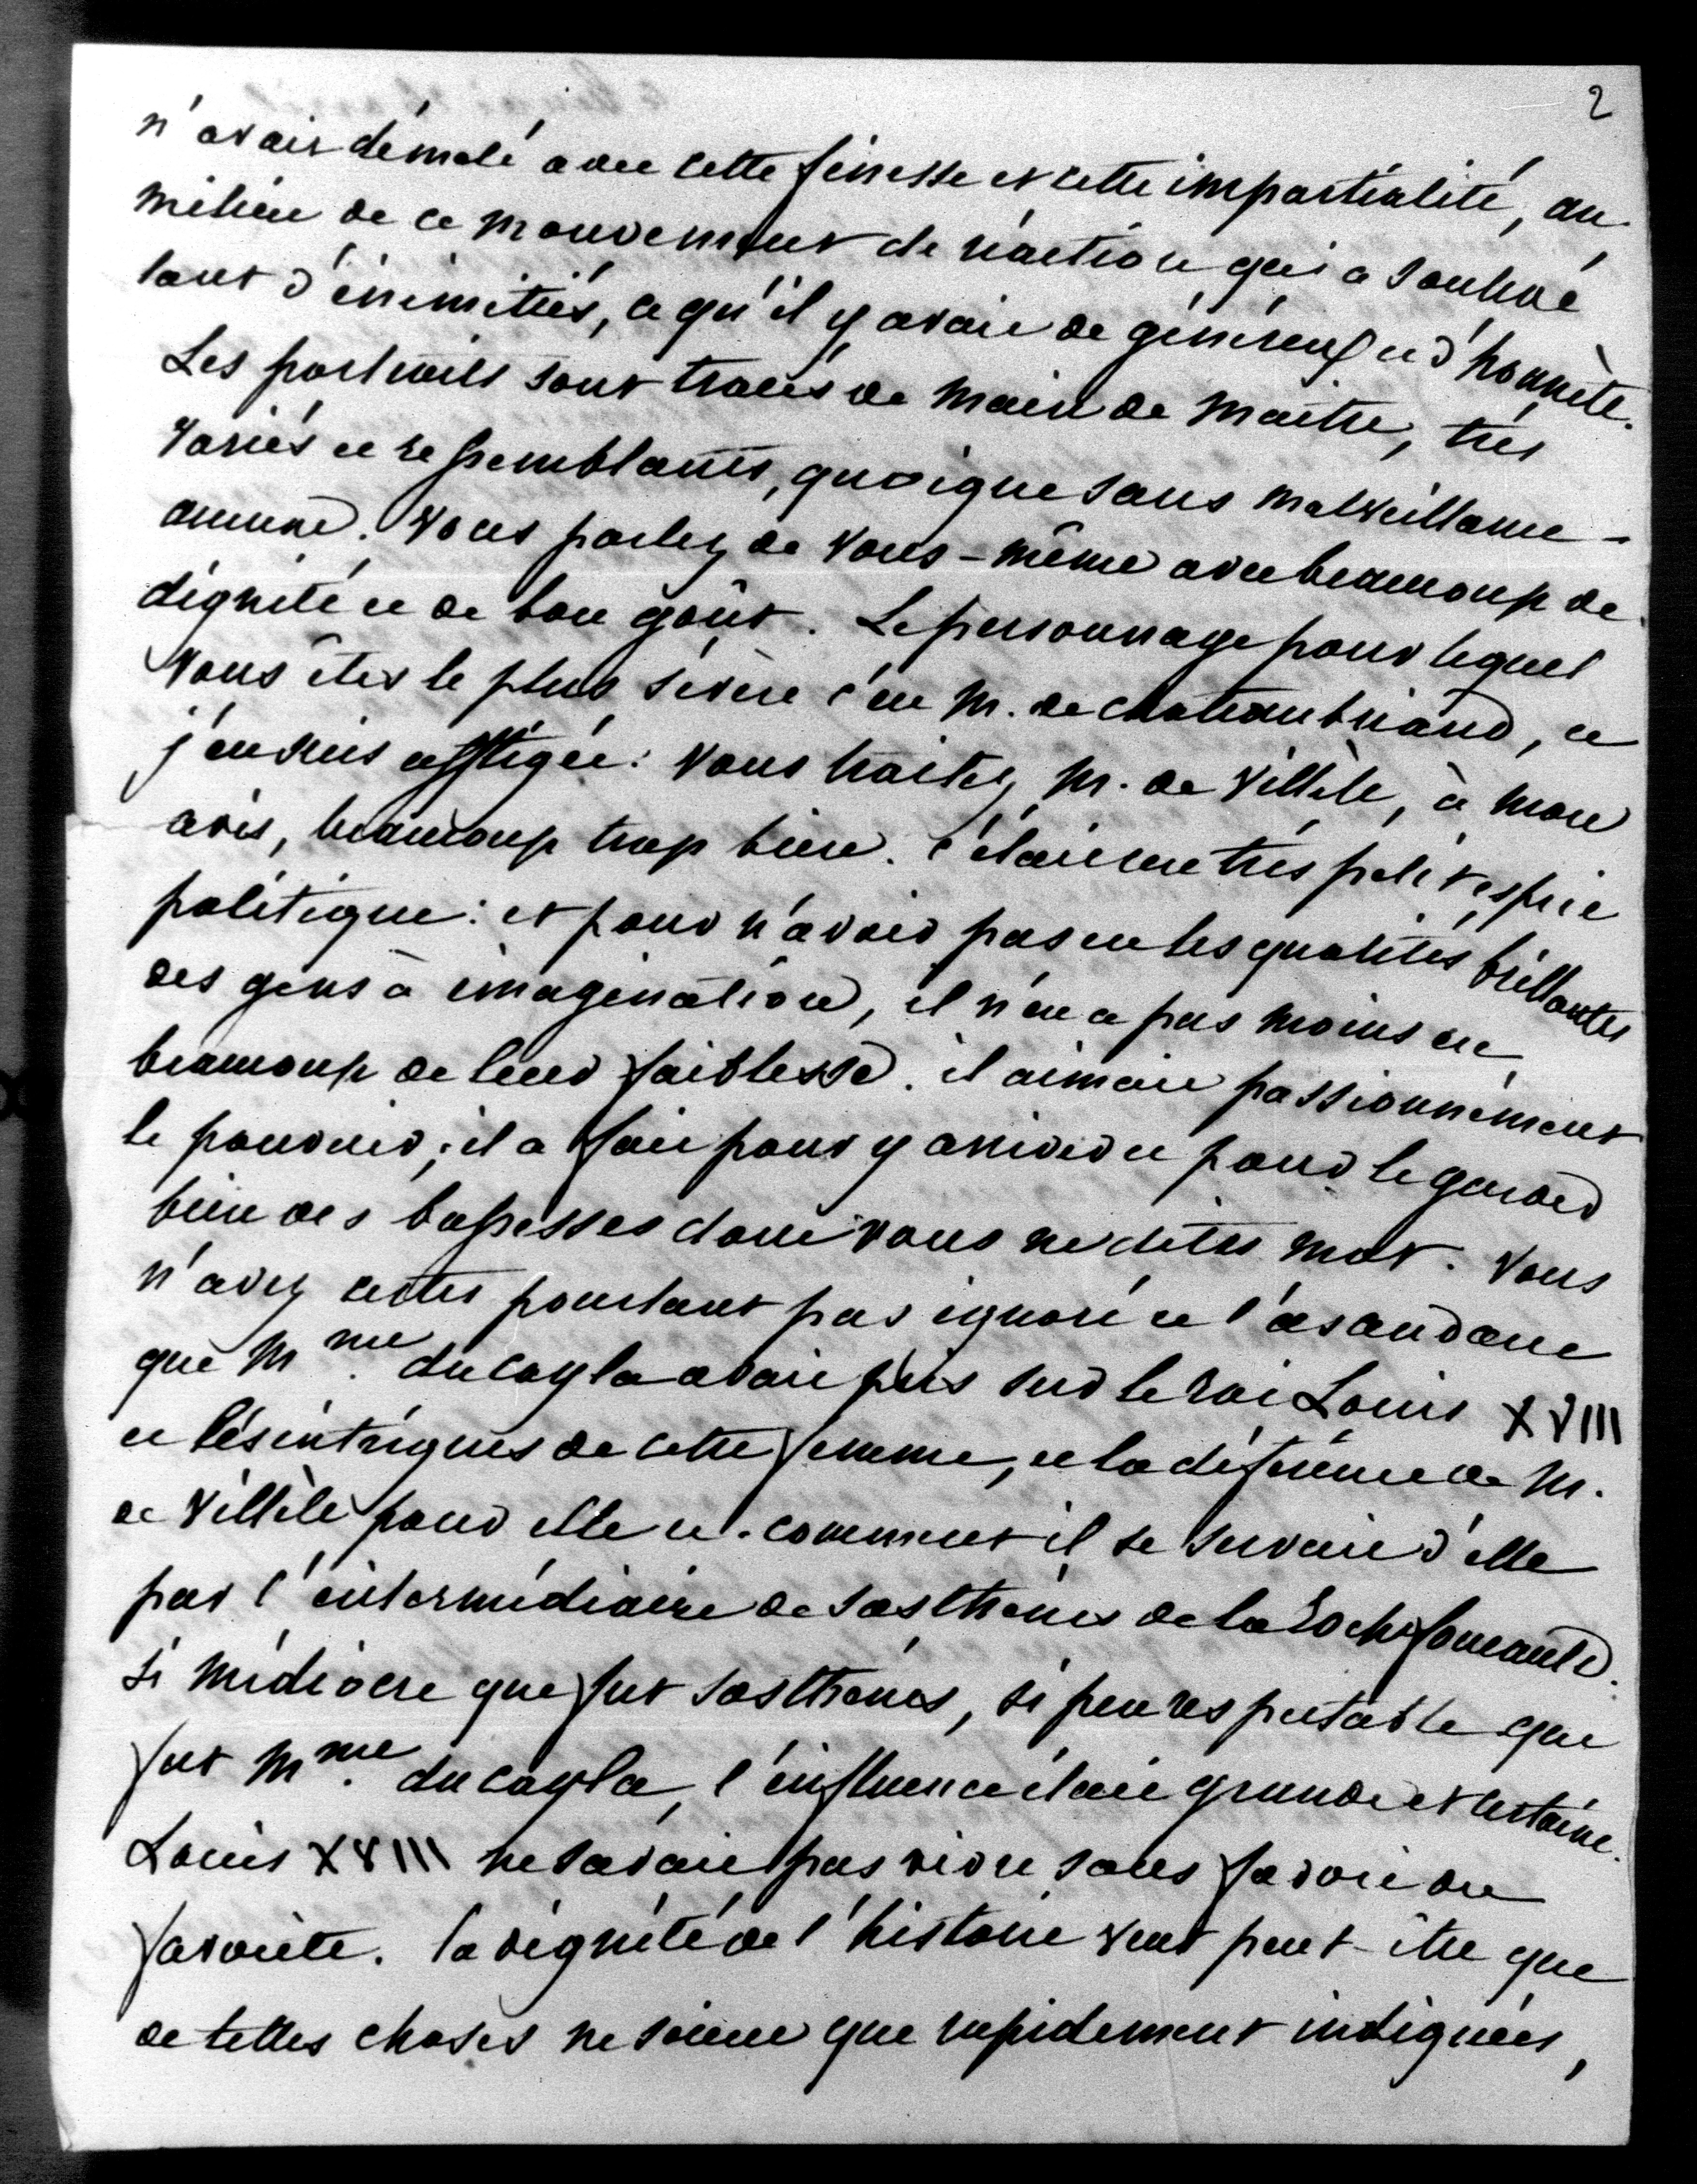 2
n'avait démêlé avec cette finesse et cette impartialité, au
milieu de ce mouvement de réaction qui a soulevé
tant d'inimitiés, ce qu'il y avait de généreux et d'honnête.
Les portraits sont tracés de main de maître, très
variés et ressemblants, quoique sans malveillance
aucune. Vous parlez de vous-même avec beaucoup de
dignité et de bon goût. Le personnage pour lequel
vous êtes le plus sévère c'est M. de chateaubriand, et
j'en suis affligée: vous traitez M. de Villèle, à mon
avis, beaucoup trop bien. c'était un très petit esprit
politique: et pour n'avoir pas eu les qualités brillantes
des gens à imagination, il n'en a pas moins eu
beaucoup de leur faiblesse. il aimait passionnément
le pouvoir; il a fait pour y arriver et pour le garder
bien des bassesses dont vous ne dites mot. Vous
n'avez certes pourtant pas ignoré et l'ascendant
que Mme. du cayla avait pris sur le roi Louis XVIII
et les intrigues de cette femme, et la déférence de M.
de Villèle pour elle et comment il se servait d'elle
par l'intermédiaire de Sosthènes de la Rochefoucauld.
si médiocre que fut Sosthènes, si peu respectable que
fut Mme. du cayla, l'influence était grande et certaine.
Louis XVIII ne savait pas vivre sans favori ou
favorite. la dignité de l'histoire veut peut-être que
de telles choses ne soient que rapidement indiquées,